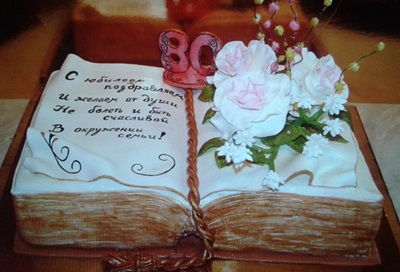 80
С юбилеем
поздравляем
И желаем от души
Не болеть и быть
счасливой
В окружении
семьи!